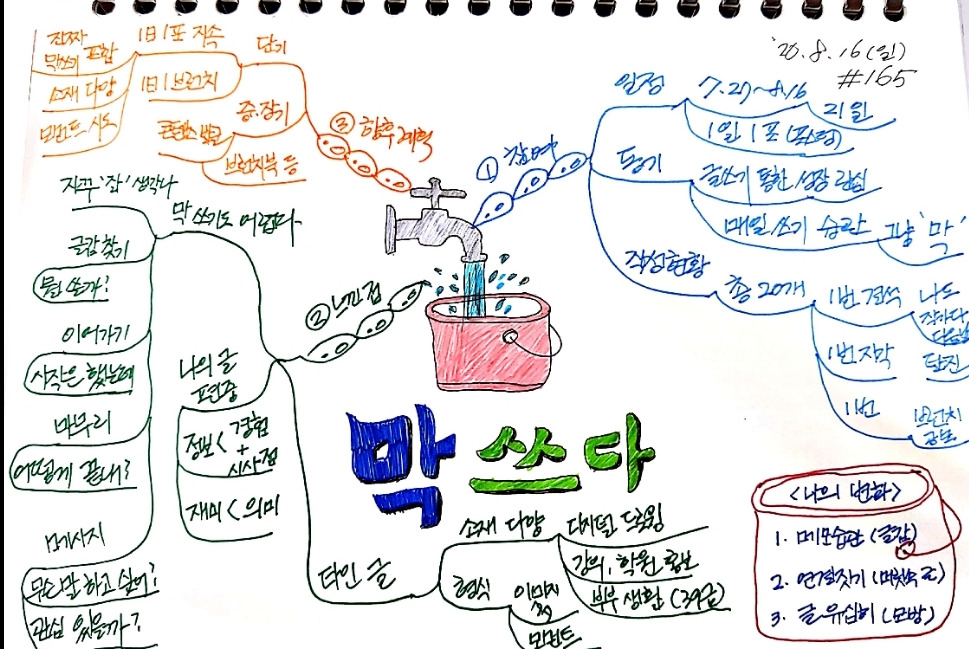 '20. 8. 16 (일)
#165
막 쓰다
① 참여
일정
7.27~8.16
21일
1일 1포 (포스팅)
동기
글쓰기 통한 성장 관심
매일 쓰기 습관
그냥 '막'
작성현황
총 20개
1번 결석
나도
작가다
1번 자막
1번
브런치
② 느낀점
막 쓰기도 어렵다
자꾸 '잘' 생각나
글감 찾기
뭘 쓸까?
이어가기
시작은 했는데
마무리
어떻게 끝내?
메시지
무슨 말 하고 싶어?
관심 있을까?
나의 글
편중
정보 < 경험
+
시사점
재미 < 의미
타인 글
소재 다양
디지털 드로잉
강의, 학원 홍보
부부 생활 (39금)
형식
이미지
멘트
③ 향후 계획
단기
1日 1포 지속
진짜
막쓰기 포함
소재 다양
시도
1日 1브런치
중.장기
브런치북 등
<나의 변화>
1. 메모습관 (글감)
2. 연결짓기
3. 글 유심히 (모방)